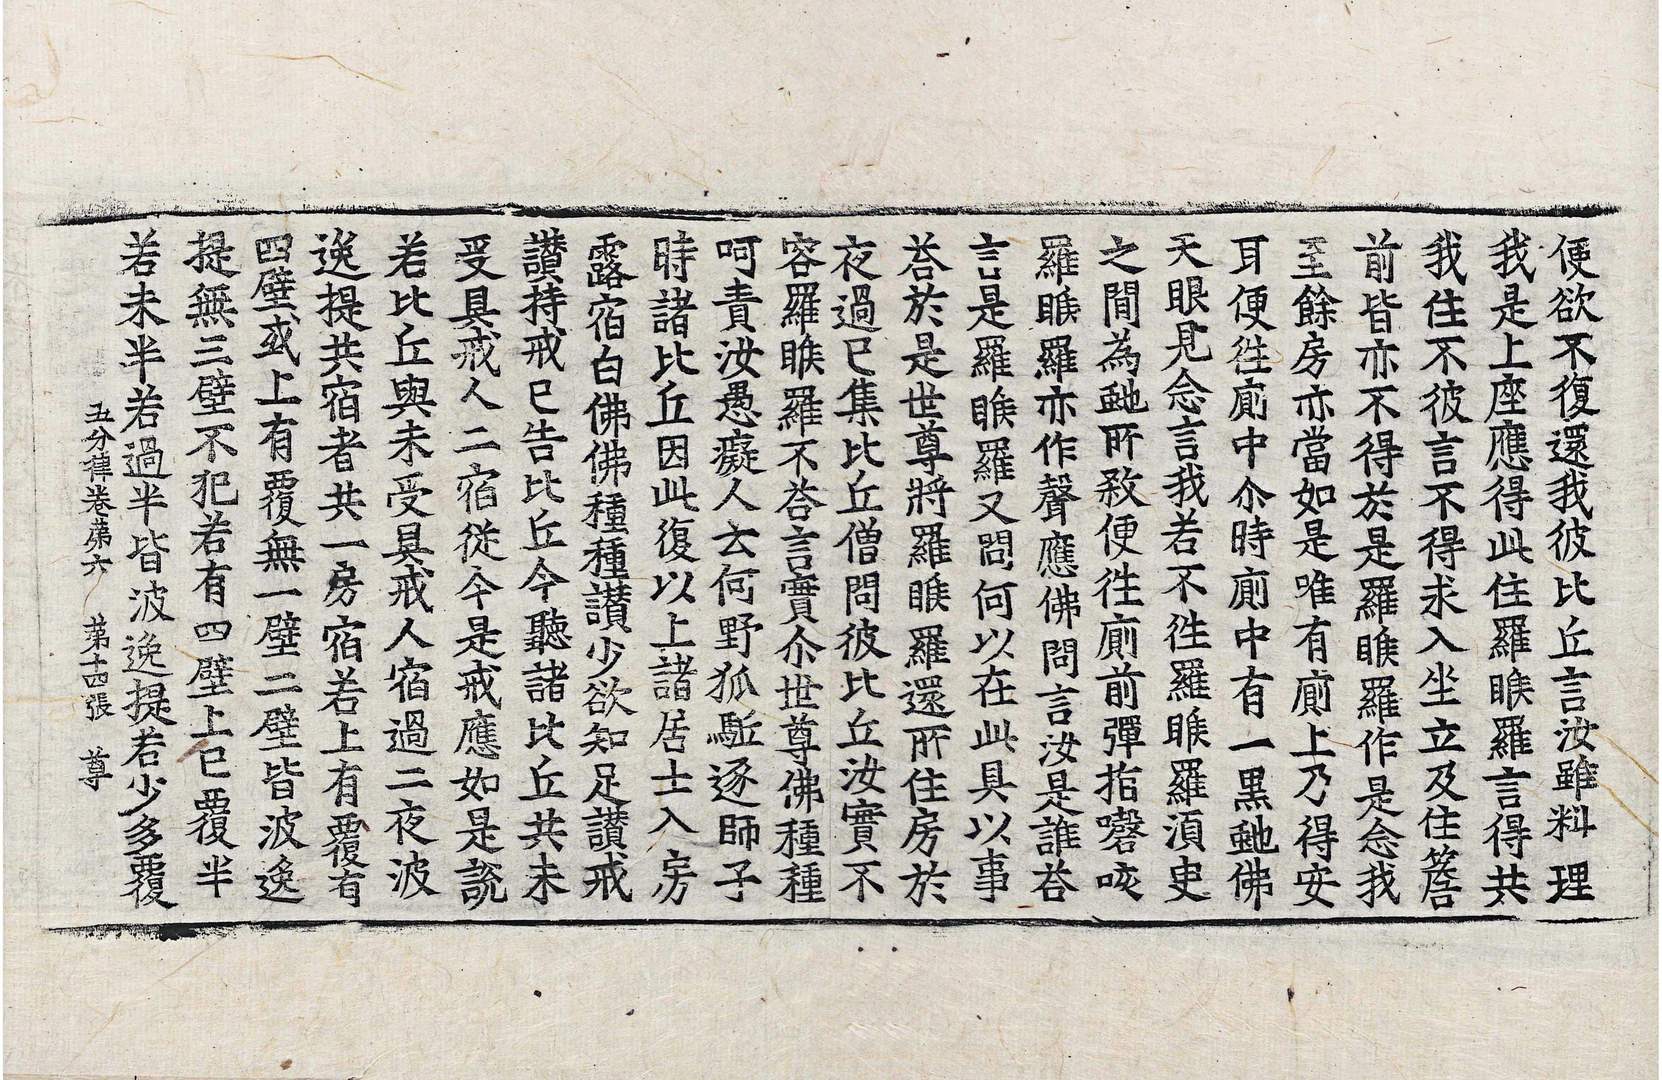 便欲不復還我彼比丘言汝雖料理
我是上座應得此住羅睺羅言得共
我住不彼言不得求入坐立及住簷
前皆亦不得於是羅睺羅作是念我
至餘房亦當如是唯有廁上乃得安
耳便徃廁中尒時廁中有一黒虵佛
天眼見念言我若不徃羅睺羅湏臾
之間為虵所殺便徃廁前彈指謦咳
羅睺羅亦作聲應佛問言汝是誰荅
言是羅睺羅又問何以在此具以事
荅於是世尊將羅睺羅還所住房於
夜過已集比丘僧問彼比丘汝實不
容羅睺羅不荅言實尒世尊佛種種
呵責汝愚癡人云何野狐駈逐師子
時諸比丘因此復以上諸居士入房
露宿白佛佛種種讃少欲知足讃戒
讃持戒已告比丘今聽諸比丘共未
受具戒人二宿從今是戒應如是說
若比丘與未受具戒人宿過二夜波
逸提共宿者共一房宿若上有覆有
四壁或上有覆無一壁二壁皆波逸
提無三壁不犯若有四壁上已覆半
若未半若過半皆波逸提若少多覆
五分律卷苐六 苐十四張 尊